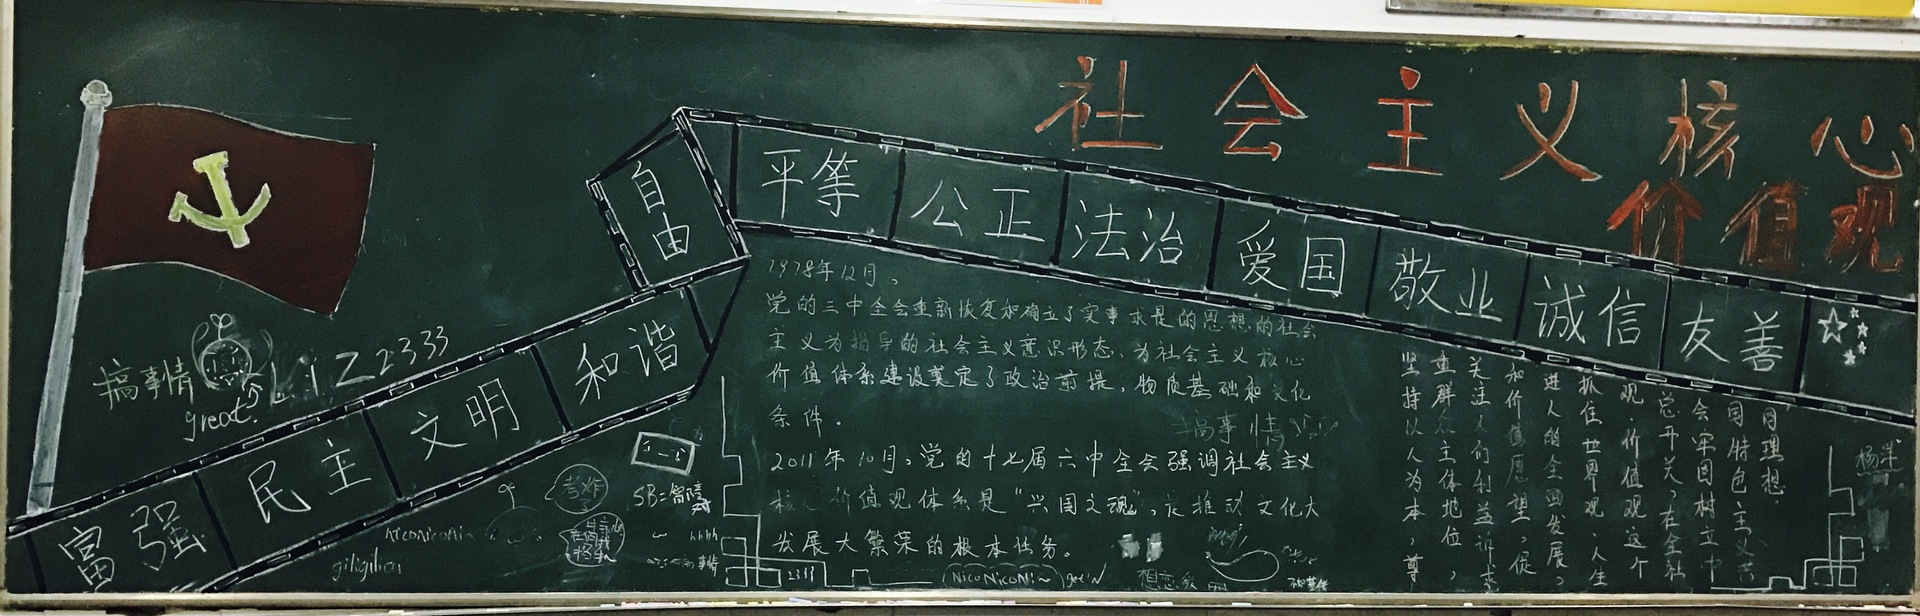 社会主义核心
价值观
富强
民主
文明
和谐
自由
平等
公正
法治
爱国
敬业
诚信
友善
搞事情
great
233
1978年12月，
党的三中全会重新恢复和确立了实事求是的思想的社会
主义为指导的社会主义意识形态，为社会主义核心
价值体系建设奠定了政治前提，物质基础和文化
条件。
搞事情
2011年10月，党的十七届六中全会强调社会主义
核心价值观体系是“兴国之魂”，是推动文化大
发展大繁荣的根本任务。
同理想，
国特色主义共
会牢固树立中
总开关，在全社
观、价值观这个
抓住世界观、人生
进人的全面发展，
和价值愿望，促
关注人们利益诉求
重群众主体地位，
坚持以人为本，尊
考炸
SB=
hhhh
事情
niconiconi~
giligiliai
2333
NicoNicoNi~
get
杨洋